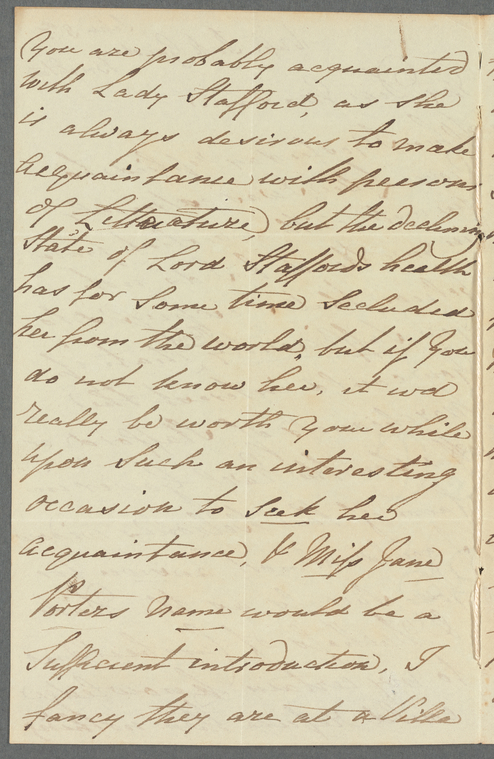 You are probably acquainted
with Lady Stafford, as she
is always desirous to make
acquaintance with persons
of Litterature, but the declining
State of Lord Staffords health
has for some time secluded
her from the world, but if you
do not know her, it wd
really be worth your while
upon such an interesting
occasion to seek her
acquaintance, & Miss Jane
Porters name would be a
Sufficient introduction, I
fancy they are at a Villa